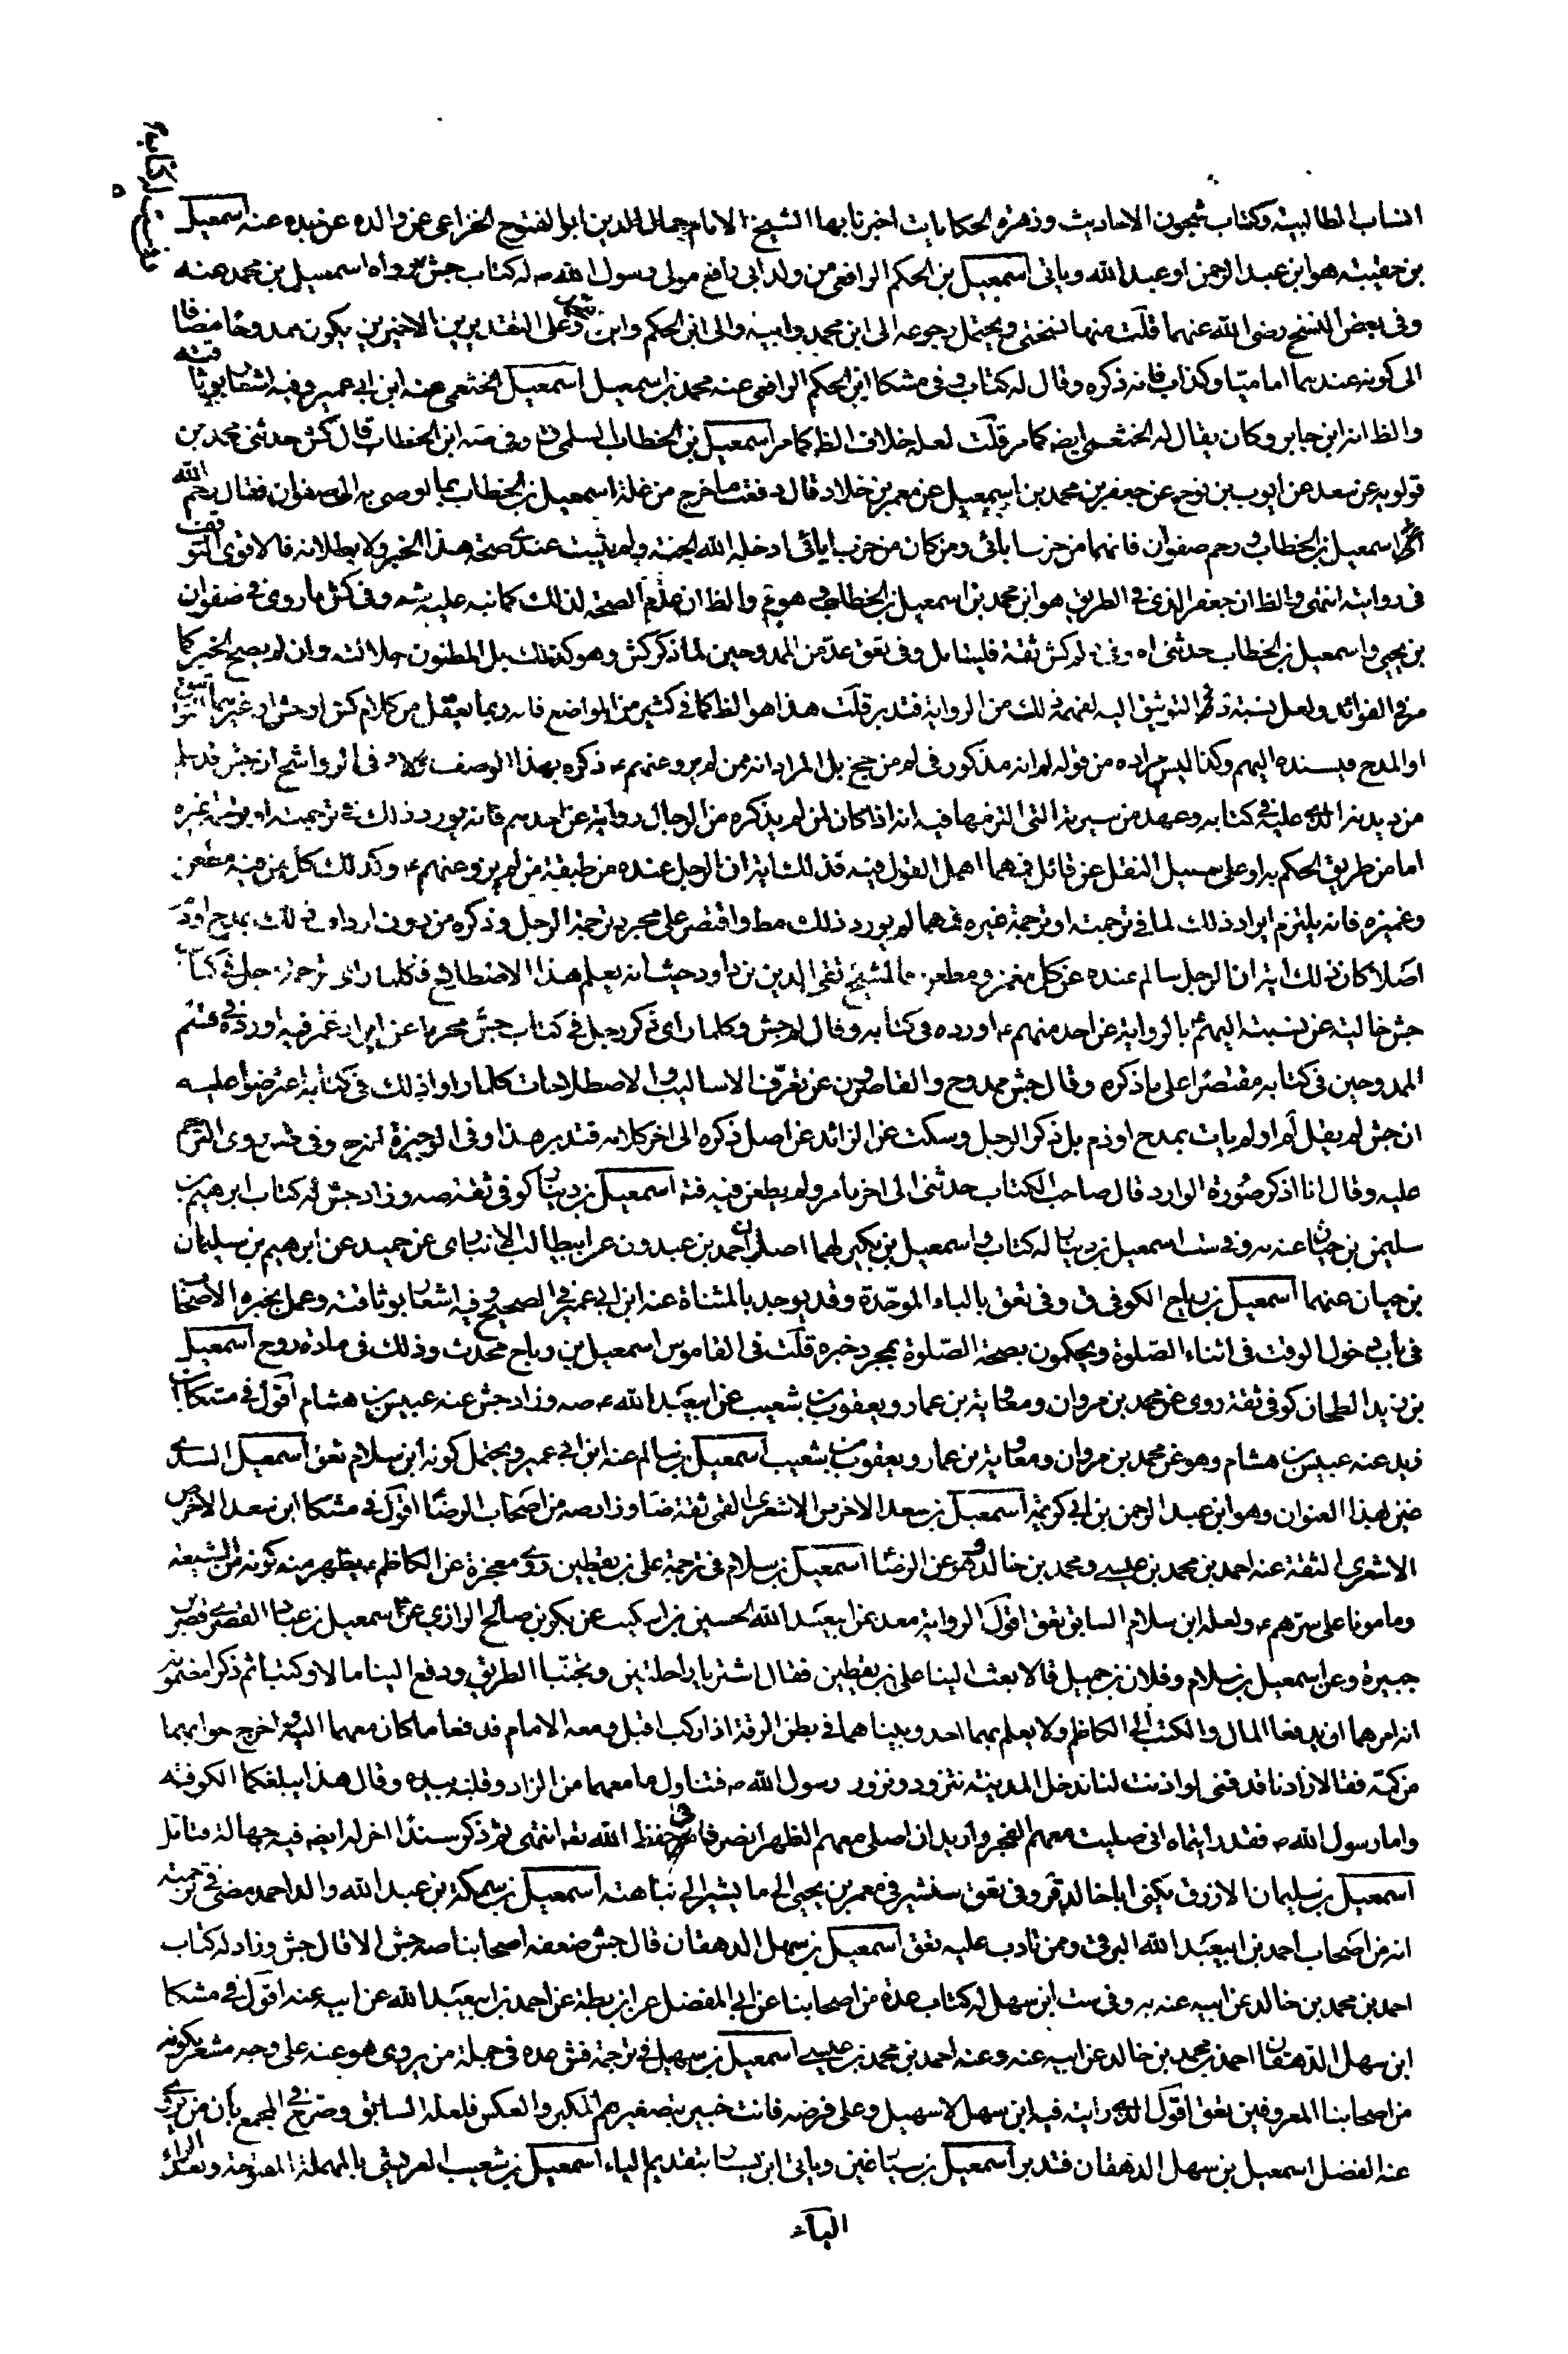 انساب الطالبية وكتاب شجون الاحاديث وزهرة الحكايات اخبرنا بها الشيخ الامام جمال الدين ابو الفتوح الخزاعى عن والده عن جده عنه اسمعيل
بن حقيبه هو ابن عبد الرحمن او عبد الله وياتى اسمعيل بن الحكم الرافعى من ولد ابى رافع مولى رسول الله ص له كتاب جش رواه اسمعيل بن محمد عنه
وفى بعض النسخ رضى الله عنهما قلت منها نسختى ويحتمل رجوعه الى ابن محمد وابيه والى ابن الحكم وابن وعلى التقديرين الاخيرين يكون ممدوحا مضافا
الى كونه عندهما اماميا وكذا فانه ذكره وقال له كتاب وفى مشكا ابن الحكم الرافعى عنه محمد بن اسمعيل اسمعيل الخثعمى عنه ابن ابى عمير وفيه اشعار بوثاقته
والظ انه ابن جابر وكان يقال له الخثعمى ايضه كما مر قلت لعله خلاف الظ كما مر اسمعيل بن الخطاب السلمى وفى صه ابن الخطاب قال كش حدثنى محمد بن
قولويه عن سعد عن ايوب بن نوح عن جعفر بن محمد بن اسمعيل عن معمر بن خلاد قال رفعت ما خرج من غلة اسمعيل بن الخطاب بما اوصى به الى صفوان فقال رحم الله
اسمعيل بن الخطاب ورحم صفوان فانهما من حزب ابائى ومن كان من حزب ابائى ادخله الله الجنة ولم يثبت عندى صحة هذا الخبر ولا بطلانه فالاقوى التوقف
فى روايته انتهى والظ ان جعفر الذى فى الطريق هو ابن محمد بن اسمعيل بن الخطاب وهو والظ ان عدم الصحة لذلك كما نبه عليه شه وفى كش ما روى فى صفوان
بن يحيى واسمعيل بن الخطاب حدثنى اه وفى لم كش ثقة فليتامل وفى تعق عد من الممدوحين لما ذكر كش وهو كذلك بل المظنون جلالته وان لم يصح الخبر كما
مر فى الفوائد ولعل نسبة التوثيق اليه لفهمه ذلك من الرواية فتدبر قلت هذا هو الظ كما فى كثير من المواضع فانه ربما يعقل من كلام كش او جش او غيرهما
او المدح ويسنده اليهم وكذا ليس مراده من قوله لم انه مذكور فى لم من جخ بل المراد انه ممن لم يرو عنهم ع ذكره بهذا الوصف ام لا وفى الرواشح ان جش قد علم
من ديدنه عليه فى كتابه وعهد من سيرته التى التزمها فيه انه اذا كان لمن لم يذكره من الرجال رواية عن احدهم فانه يورد ذلك فى ترجمته او ترجمة غيره
اما من طريق الحكم به او على سبيل النقل عن قائل فمهما اهمل القول فيه فذلك اية ان الرجل عنده من طبقة من لم يرو عنهم ع وكذلك كل من فيه مطعن
وغميزه فانه يلتزم ايراد ذلك اما فى ترجمته او ترجمة غيره فمهما لم يورد ذلك مط واقتصر على مجرد ترجمة الرجل وذكره من دون ارداف ذلك بمدح او ذم
اصلا كان ذلك اية ان الرجل سالم عنده عن كل مغمز ومطعن فالشيخ تقى الدين بن داود حيث انه يعلم هذا الاصطلاح فكلما راى ترجمة رجل فى كتاب
جش خالية عن نسبته اليهم بالرواية عن احد منهم ع اورده فى كتابه وقال لم جش وكلما راى ذكر رجل فى كتاب جش مجردا عن ايراد غمز فيه اورده فى قسم
الممدوحين فى كتابه مقتصرا على ما ذكره وقال جش ممدوح والقاصرون عن تعرف الاساليب والاصطلاحات كلما راوا ذلك فى كتابه اعترضوا عليه
ان جش لم يقل لم او لم يات بمدح او ذم بل ذكر الرجل وسكت عن الزائد عن اصل ذكره الى اخر كلامه فتدبر هذا وفى الوجيزة وفى روى الترحم
عليه وقال انا اذكر صورة الوارد قال صاحب الكتاب حدثنى الى اخر ما مر ولم يطعن فيه فته اسمعيل بن دينار كوفى ثقة صه وزاد جش له كتاب ابرهيم بن
سليمن بن حيان عنه به وفى ست اسمعيل بن دينار له كتاب واسمعيل بن بكير لهما اصل احمد بن عبدون عن ابيطالب الانبارى عن حميد عن ابرهيم بن سليمان
بن حيان عنهما اسمعيل بن رباح الكوفى ق وفى تعق بالباء الموحدة وقد يوجد بالمثناة عنه ابن ابى عمير فى الصحيح وفيه اشعار بوثاقته وعمل بخبره الاصحاب
فى باب دخول الوقت فى اثناء الصلوة ويحكمون بصحة الصلوة بمجرد خبره قلت فى القاموس اسمعيل بن رباح محدث وذلك فى مادة روح اسمعيل
بن زيد الطحان كوفى ثقة روى عن محمد بن مروان ومعاوية بن عمار ويعقوب بن شعيب عن ابيعبد الله ع صه وزاد جش عنه عبيس بن هشام اقول فى مشكا ابن
زيد عنه عبيس بن هشام وهو عن محمد بن مروان ومعاوية بن عمار ويعقوب بن شعيب اسمعيل بن سالم عنه ابن ابى عمير ويحتمل كونه ابن سلام تعق اسمعيل السدى
ضين بهذا العنوان وهو ابن عبد الرحمن بن ابى كريمة اسمعيل بن سعد الاحوص الاشعرى القمى ثقة ضا وزاد صه من اصحاب الرضا اقول فى مشكا ابن سعد الاحوص
الاشعرى الثقة عنه احمد بن محمد بن عيسى ومحمد بن خالد وهو عن الرضا اسمعيل بن سلام فى ترجمة على بن يقطين روى معجزة عن الكاظم ع يظهر منه كونه من الشيعة
ومامونا على سرهم ع ولعله ابن سلام السابق تعق اقول الرواية معد عن ابيعبد الله الحسين بن اسكيب عن بكر بن صالح الرازى عن اسمعيل بن عباد القصرى قصر بن
جبيرة وعن اسمعيل بن سلام وفلان بن حميل قالا بعث الينا على بن يقطين فقال اشتريا راحلتين وتجنبا الطريق ودفع الينا مالا وكتبا ثم ذكرا مضمونه
انه امرهما ان يدفعا المال والكتب الى الكاظم ولا يعلم بهما احد وبيناهما فى بطن الرقة اذا راكب اقبل ومعه الامام فدفعا ما كان معهما اليه فاخرج جوابهما
من كمه فقالا زادنا قد فنى لو اذنت لنا ندخل المدينة نتزود ونزور رسول الله ص فتناول ما معهما من الزاد وقلبه بيده وقال هذا يبلغكما الكوفة
واما رسول الله ص فقد رايتماه انى صليت معهم الفجر واريد ان اصلى معهم الظهر انصرفا فى حفظ الله تعه انتهى ثم ذكر سندا اخر له ايضه فيه جهالة فتامل
اسمعيل بن سليمان الازرق يكنى ابا خالد قر وفى تعق سنشير فى معمر بن يحيى الى ما يشير الى نباهته اسمعيل بن سمكة بن عبد الله والد احمد مضى فى ترجمته
انه من اصحاب احمد بن ابيعبد الله البرقى ومن تادب عليه تعق اسمعيل بن سهل الدهقان قال جش ضعفه اصحابنا صه جش الا قال جش وزاد له كتاب
احمد بن محمد بن خالد عن ابيه عنه به وفى ست ابن سهل له كتاب عدة من اصحابنا عن ابى المفضل عن ابن بطة عن احمد بن ابيعبد الله عن ابيه عنه اقول فى مشكا
ابن سهل الدهقان احمد بن محمد بن خالد عن ابيه عنه وعنه احمد بن محمد بن عيسى اسمعيل بن سهيل فى ترجمة فتش عده فى جملة من يروى هو عنه على وجه مشعر بكونه
من اصحابنا المعروفين تعق اقول الذى رايته فيه ابن سهل لا سهيل وعلى فرضه فانت خبير بتصغيرهم المكبر والعكس فلعله السابق وصرح فى المجمع بان من يروى
عنه الفضل اسمعيل بن سهل الدهقان فتدبر اسمعيل بن سيار غين وياتى ابن يسار بتقديم الياء اسمعيل بن شعيب العريشى بالمهملة المفتوحة وبعد الراء
الياء